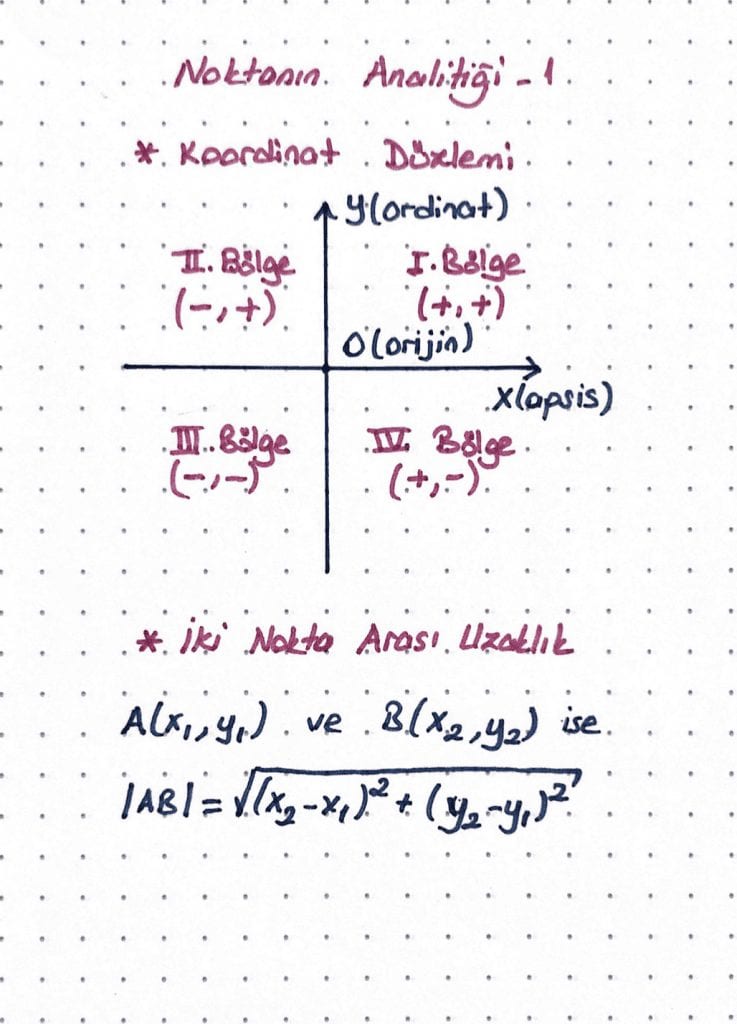 Noktanın Analitiği - 1
* Koordinat Düzlemi
y(ordinat)
II. Bölge
(-,+)
I. Bölge
(+,+)
O(orijin)
x(apsis)
III. Bölge
(-,-)
IV. Bölge
(+,-)
* İki Nokta Arası Uzaklık
A(x₁,y₁) ve B(x₂,y₂) ise
|AB| = √(x₂-x₁)² + (y₂-y₁)²